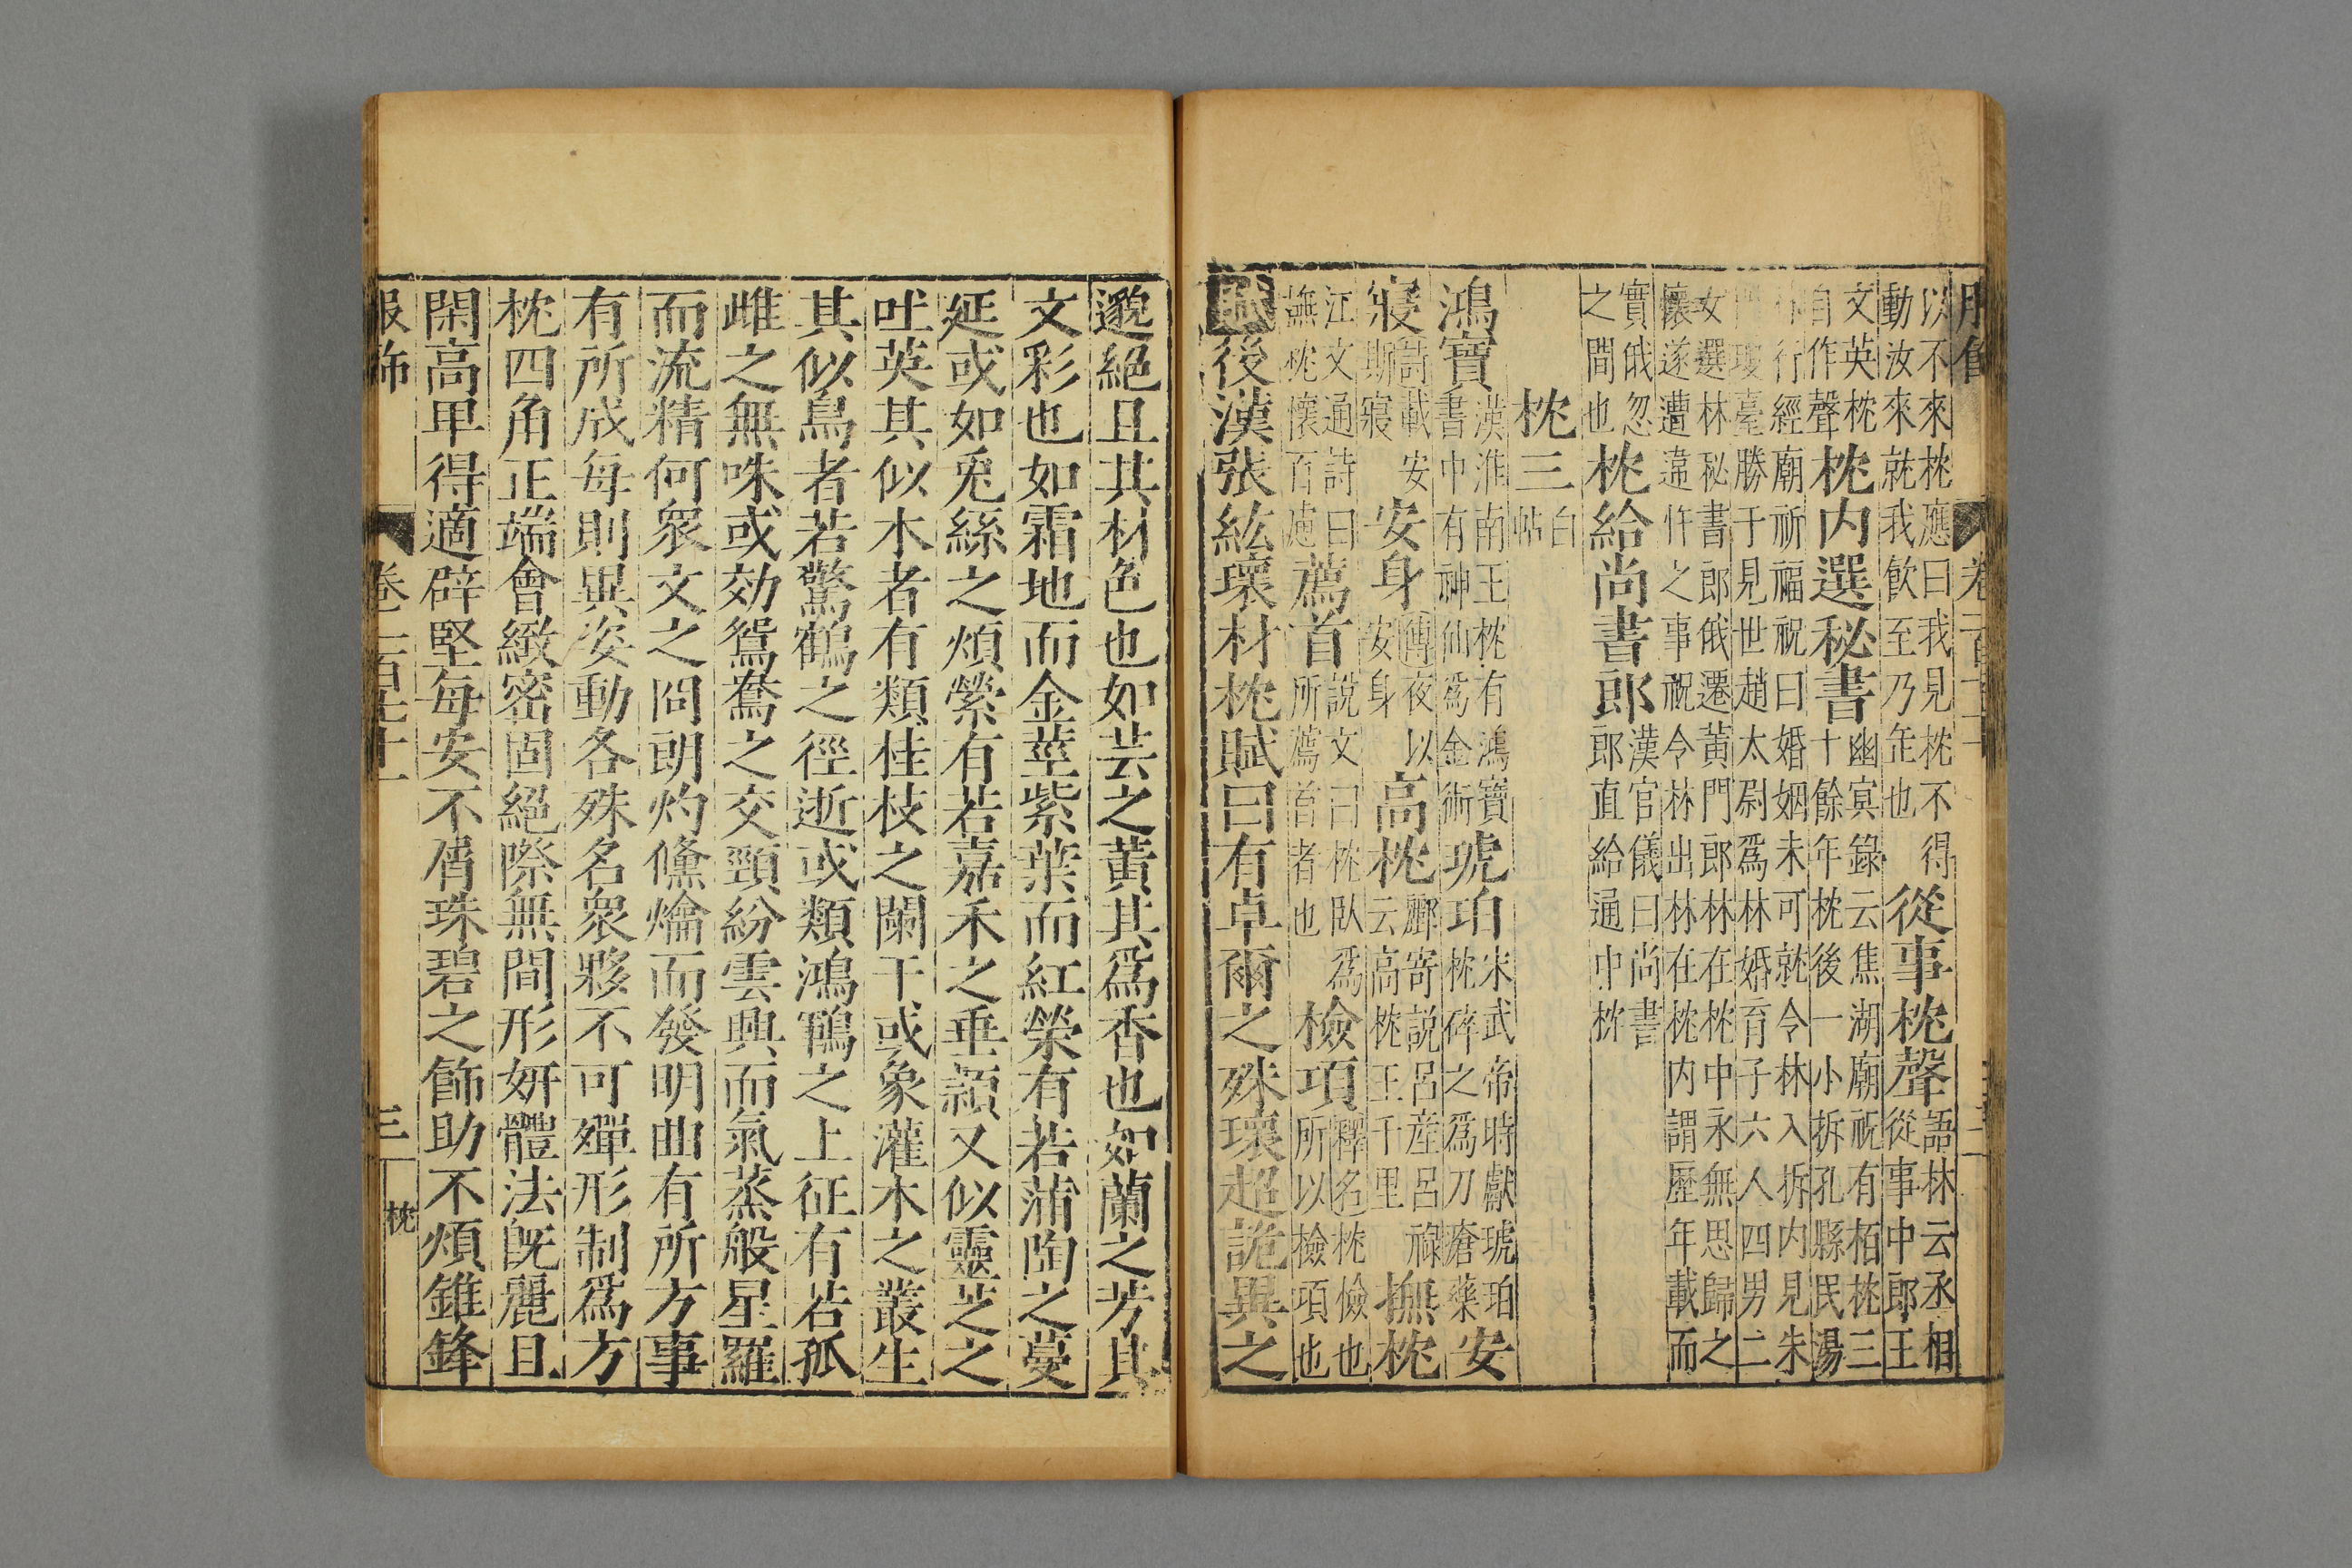 以不來枕應曰我見枕不得
動汝來就我飲至乃缶也
從事枕聲
語林云丞相
從事中郎王
文英枕
自作聲
枕内選秘書
幽冥錄云焦湖廟祝有栢枕三
十餘年枕後一小拆孔縣民湯
行經廟祈福祝曰婚姻未可就令林入拆内見朱
門瓊臺勝于見世趙太尉爲林婚育子六人四男二
女選林秘書郎俄遷黃門郎林在枕中永無思歸之
懷遂遭違忤之事祝令林出林在枕内謂歷年載而
實俄忽
之間也
枕給尚書郎
漢官儀曰尚書
郎直給通中枕
枕三
白
帖
鴻寶
漢淮南王枕有鴻寶
書中有神仙爲金術
琥珀
宋武帝時獻琥珀
枕碎之爲刀瘡藥
安
寢
詩載安
斯寢
安身
傳夜以
安身
高枕
酈寄説呂産呂祿
云高枕王千里
撫枕
江文通詩曰
撫枕懷百慮
薦首
説文曰枕臥爲
所薦首者也
檢項
釋名枕儉也
所以檢項也
賦後漢張紘瓌材枕賦曰有卓爾之殊瓌超詭異之
邈絕且其材色也如芸之黃其爲香也如蘭之芳其
文彩也如霜地而金莖紫葉而紅榮有若蒲陶之蔓
延或如兎絲之煩縈有若嘉禾之垂穎又似靈芝之
吐英其似木者有類桂枝之闌干或象灌木之叢生
其似鳥者若驚鶴之徑逝或類鴻鶤之上征有若孤
雌之無咮或効鴛鴦之交頸紛雲興而氣蒸般星羅
而流精何衆文之冏朗灼儵爚而發明曲有所方事
有所成每則異姿動各殊名衆夥不可殫形制爲方
枕四角正端會緻密固絕際無間形妍體法旣麗且
閑高卑得適辟堅每安不屑珠碧之飾助不煩錐鋒
服飾 卷二百七十一 三 枕